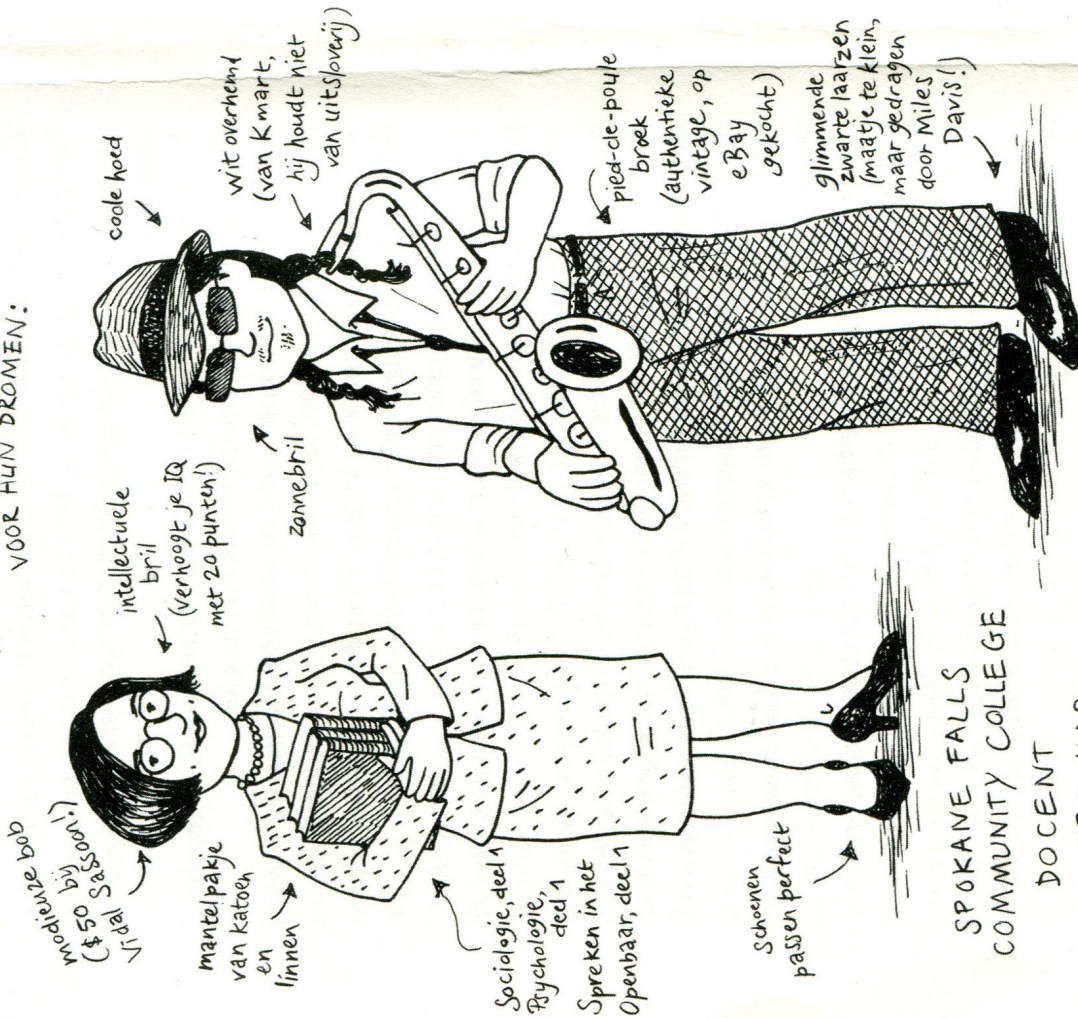 VOOR HUN DROMEN:
modieuze bob
($50 bij
Vidal Sassoon!)
intellectuele
bril
(verhoogt je IQ
met 20 punten!)
mantelpakje
van katoen
en
linnen
Sociologie, deel 1
Psychologie,
deel 1
Spreken in het
Openbaar, deel 1
Schoenen
passen perfect
SPOKANE FALLS
COMMUNITY COLLEGE
DOCENT
coole hoed
zonnebril
wit overhemd
(van Kmart,
hij houdt niet
van uitsloverij)
pied-de-poule
broek
(authentieke
vintage, op
eBay
gekocht)
glimmende
zwarte laarzen
(maatje te klein,
maar gedragen
door Miles
Davis!)